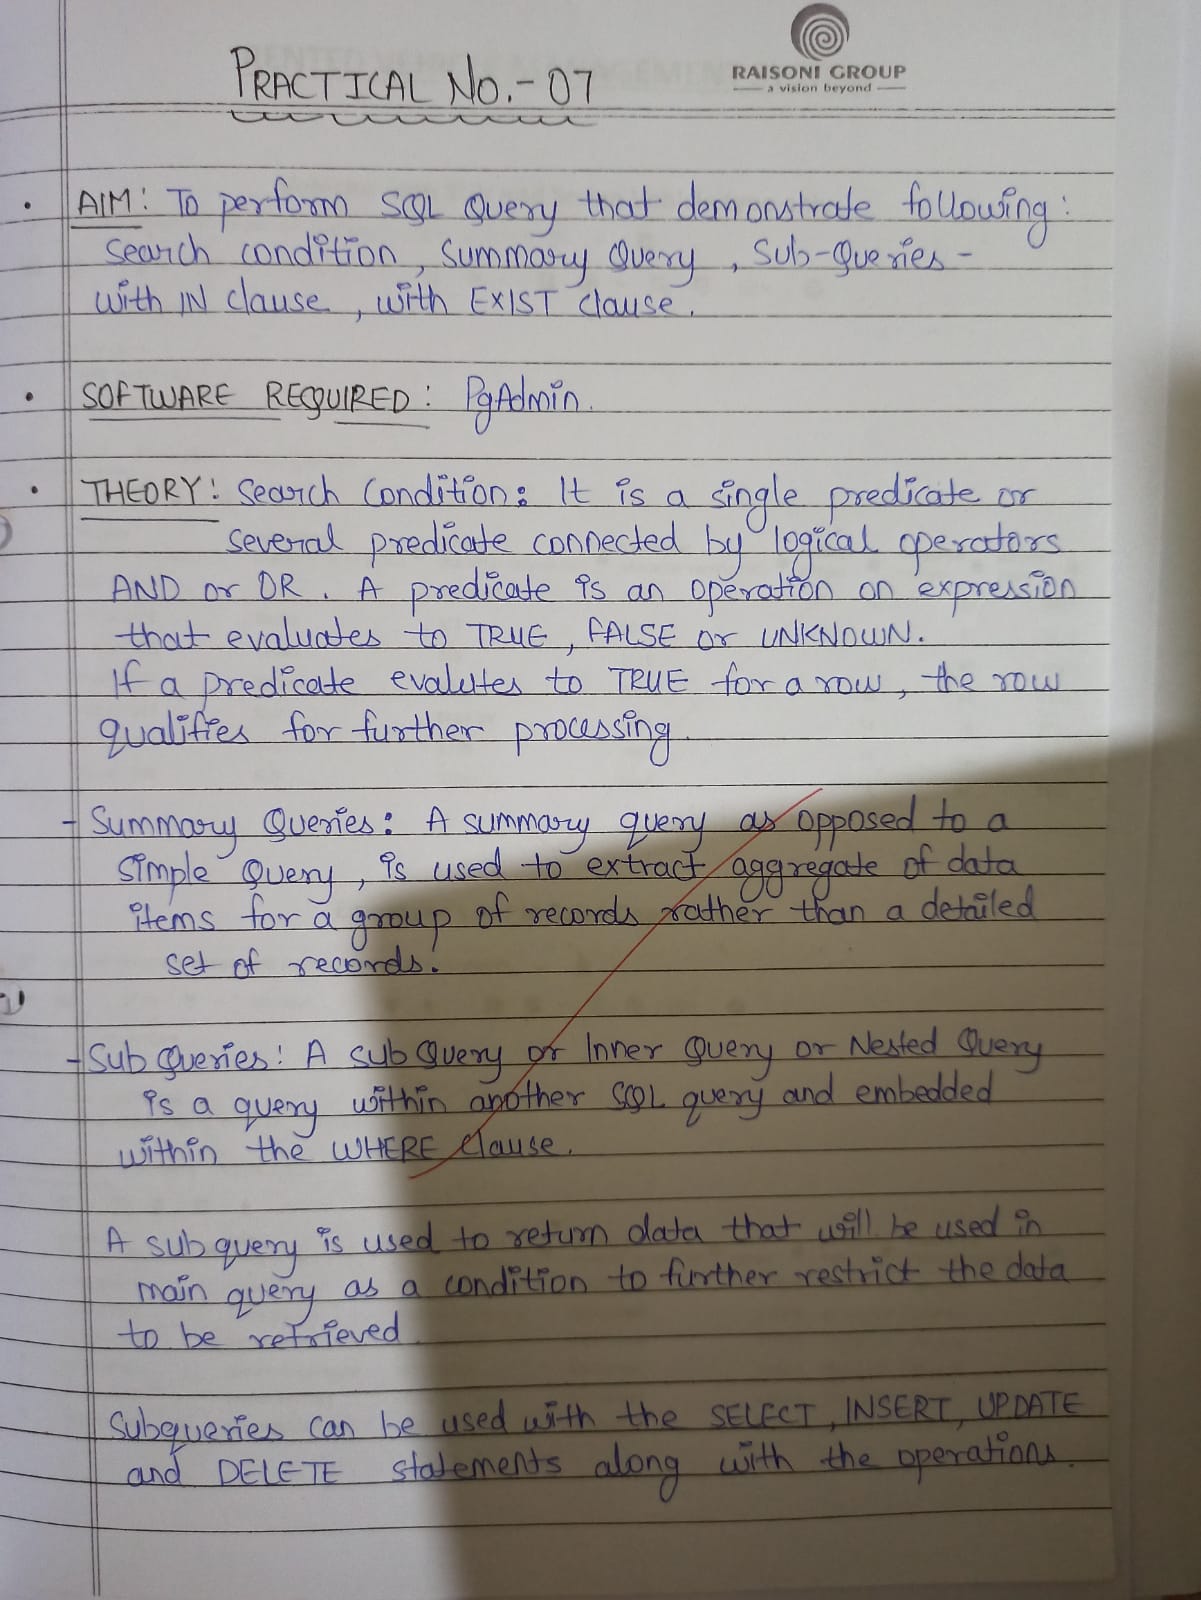 PRACTICAL No.-07
RAISONI GROUP
a vision beyond
• AIM: To perform SQL Query that demonstrate following:
Search condition, Summary Query, Sub-Queries-
with IN clause, with EXIST clause.
• SOFTWARE REQUIRED: PgAdmin.
• THEORY: Search Condition: It is a single predicate or
several predicate connected by logical operators
AND or OR. A predicate is an operation on expression
that evaluates to TRUE, FALSE or UNKNOWN.
If a predicate evalutes to TRUE for a row, the row
qualifies for further processing.
- Summary Queries: A summary query as opposed to a
simple Query, is used to extract aggregate of data
items for a group of records rather than a detailed
set of records.
- Sub Queries: A Sub Query or Inner Query or Nested Query
is a query within another SQL query and embedded
within the WHERE clause.
A subquery is used to return data that will be used in
main query as a condition to further restrict the data
to be retrieved.
Subqueries can be used with the SELECT, INSERT, UPDATE
and DELETE statements along with the operations.